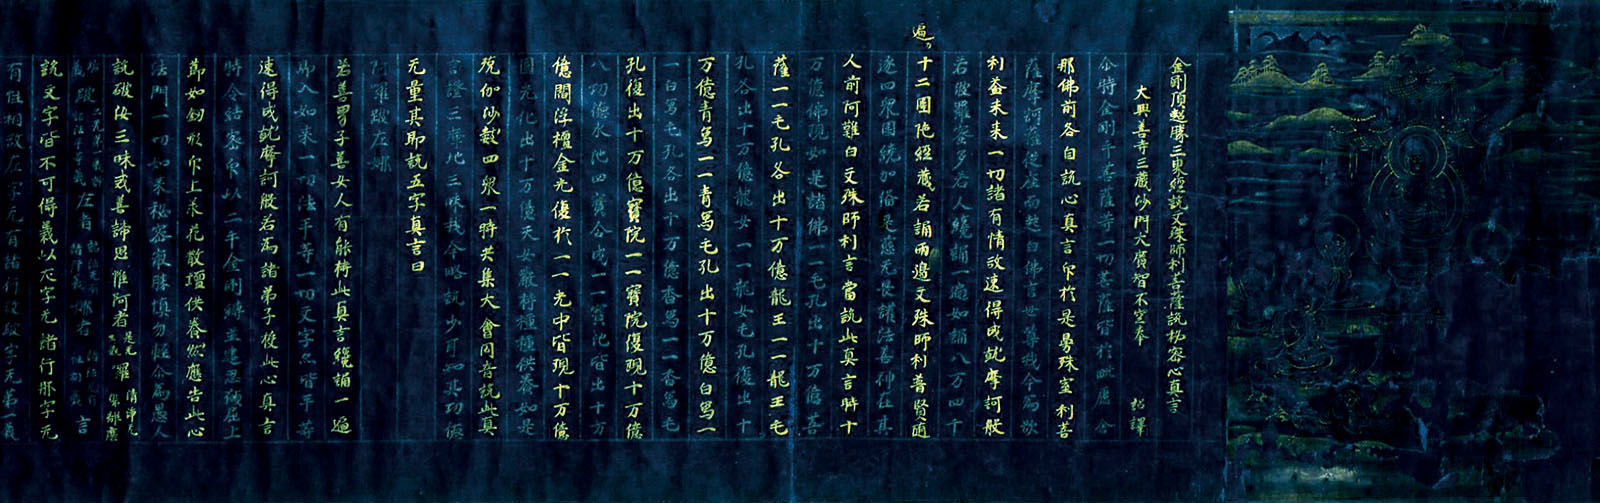 金剛頂超勝三界經說文殊師利菩薩說秘密心真言
大興善寺三藏沙門大廣智不空奉 詔譯
尒時金剛手菩薩等一切菩薩皆於毗盧舍
那佛前各自說心真言印於是曼殊室利菩
薩摩訶薩從座而起白佛言世尊我今為欲
利益未來一切諸有情故速得成就摩訶般
若波羅蜜多若人纔誦一遍如誦八万四千
遍
十二圍陁經藏若誦兩遍文殊師利普賢
逐四眾圍繞加俻是慈无畏護法善神在其
人前阿難白文殊師利言當說此真言時十
万億佛現如是諸佛一一毛孔出十万億菩
薩一一毛孔各出十万億龍王一一龍王毛
孔各出十万億龍女一一龍女毛孔復出十
万億青鳥一一青鳥毛孔出十万億白鳥一
一白鳥毛孔各出十万億香鳥一一香鳥毛
孔復出十万億寶院一一寶院復現十万億
八功德水池四寶合成一一寶池皆出十万
億閻浮檀金光復於一一光中皆現十万億
圓光化出十万億天女散持種種供養如是
殑伽沙數四眾一時共集大會同音說此真
言證三摩地三昧我今略說少分如其功德
无量其即說五字真言曰
阿羅跛左娜
若善男子善女人有能持此真言纔誦一遍
即入如來一切法平等一切文字亦皆平等
速得成就摩訶般若為諸弟子授此心真言
時令結密印以二手金剛縛並建忍願屈上
節如釰形印上承花散壇供養然應告此心
法門一切如來秘密最勝慎勿輕佘為愚人
說破汝三昧或善諦思惟阿者 是无生義 羅 清淨无塵
言
說文字皆不可得義以左字无諸行邢字无
有性相故左字无有諸行故跛字无第一義